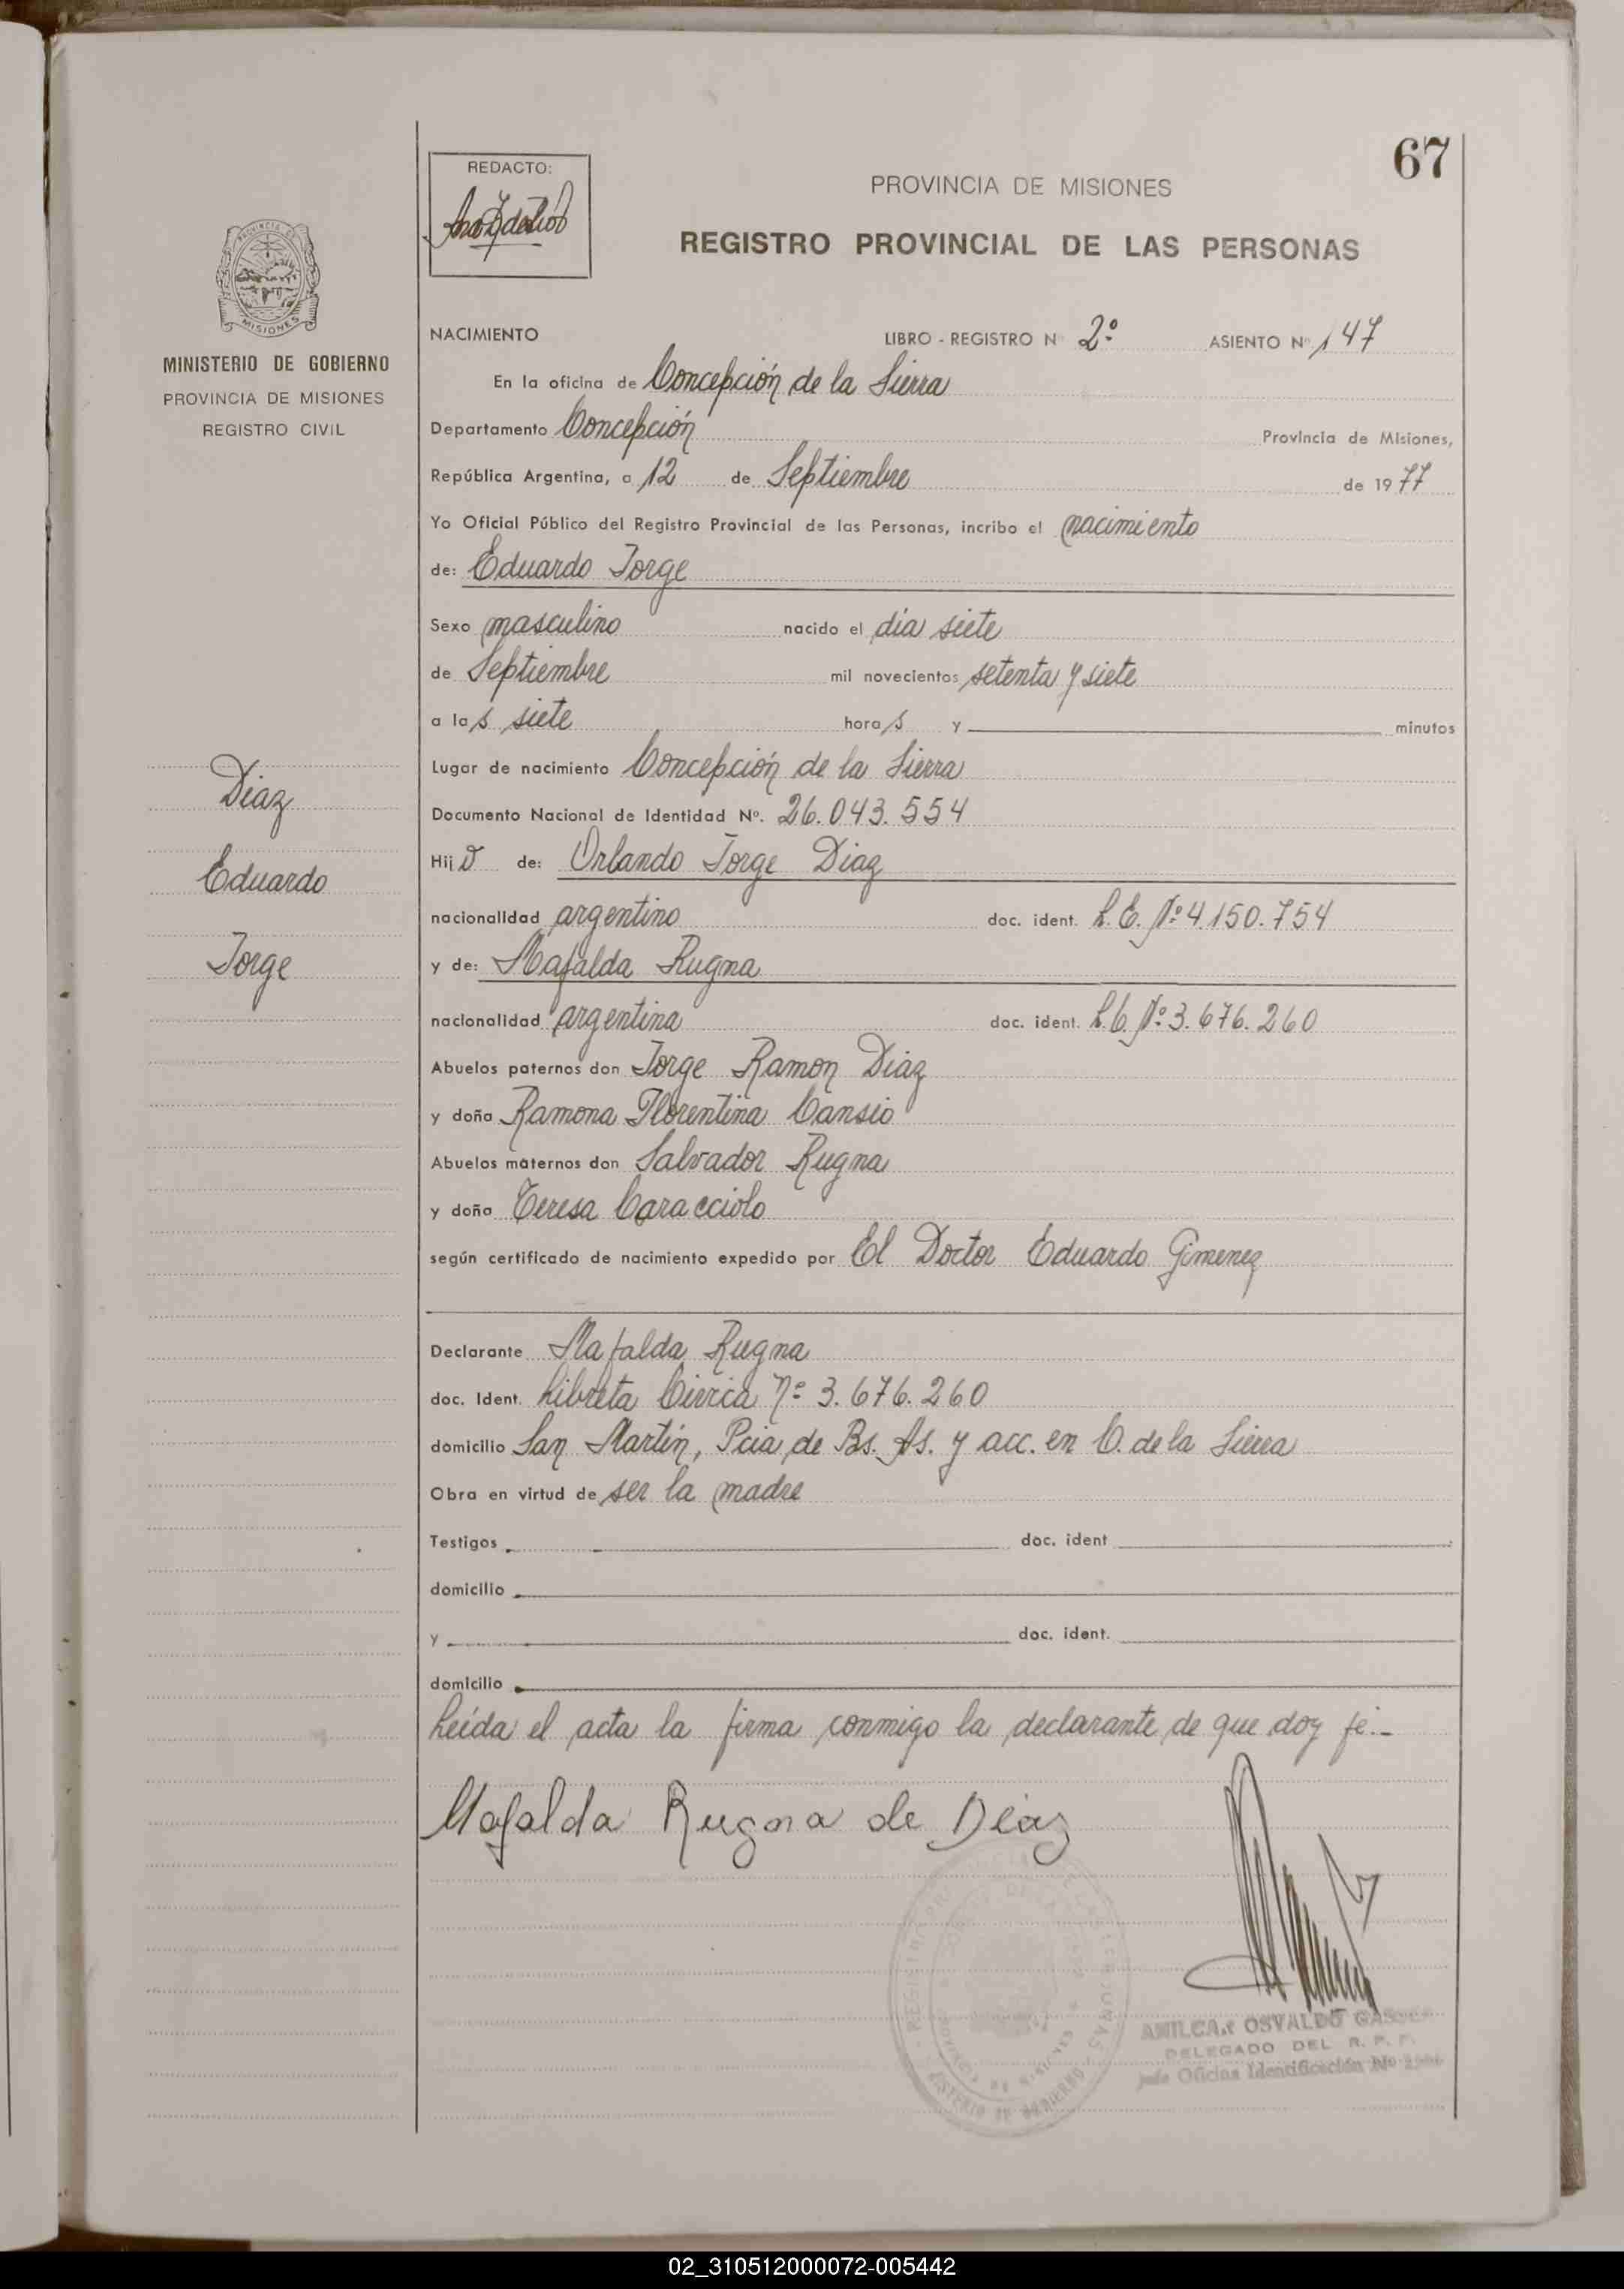 67
REDACTO:
PROVINCIA DE MISIONES
REGISTRO PROVINCIAL DE LAS PERSONAS
MISIONES
MINISTERIO DE GOBIERNO
PROVINCIA DE MISIONES
REGISTRO CIVIL
Diaz
Eduardo
Jorge
NACIMIENTO LIBRO - REGISTRO Nº 2º ASIENTO Nº 147
En la oficina de Concepción de la Sierra
Departamento Concepción Provincia de Misiones,
República Argentina, a 12 de Septiembre de 1977
Yo Oficial Público del Registro Provincial de las Personas, incribo el nacimiento
de: Eduardo Jorge
Sexo masculino nacido el día siete
de Septiembre mil novecientos setenta y siete
a las siete horas y minutos
Lugar de nacimiento Concepción de la Sierra
Documento Nacional de Identidad Nº. 26.043.554
Hijo de: Orlando Jorge Diaz
nacionalidad argentino doc. ident. L.E. Nº 4.150.754
y de: Mafalda Rugna
nacionalidad argentina doc. ident. L.C. Nº 3.676.260
Abuelos paternos don Jorge Ramon Diaz
y doña Ramona Florentina Cansio
Abuelos maternos don Salvador Rugna
y doña Teresa Caracciolo
según certificado de nacimiento expedido por El Doctor Eduardo Gimenez
Declarante Mafalda Rugna
doc. Ident. Libreta Cívica Nº 3.676.260
domicilio San Martín, Pcia de Bs. As. y acc. en C. de la Sierra
Obra en virtud de ser la madre
Testigos doc. ident
domicilio
y doc. ident.
domicilio
Leída el acta la firma conmigo la declarante de que doy fe.-
Mafalda Rugna de Diaz
AMILCAR OSVALDO
DELEGADO DEL R. P. P.
Jefe Oficina Identificación Nº
02_310512000072-005442